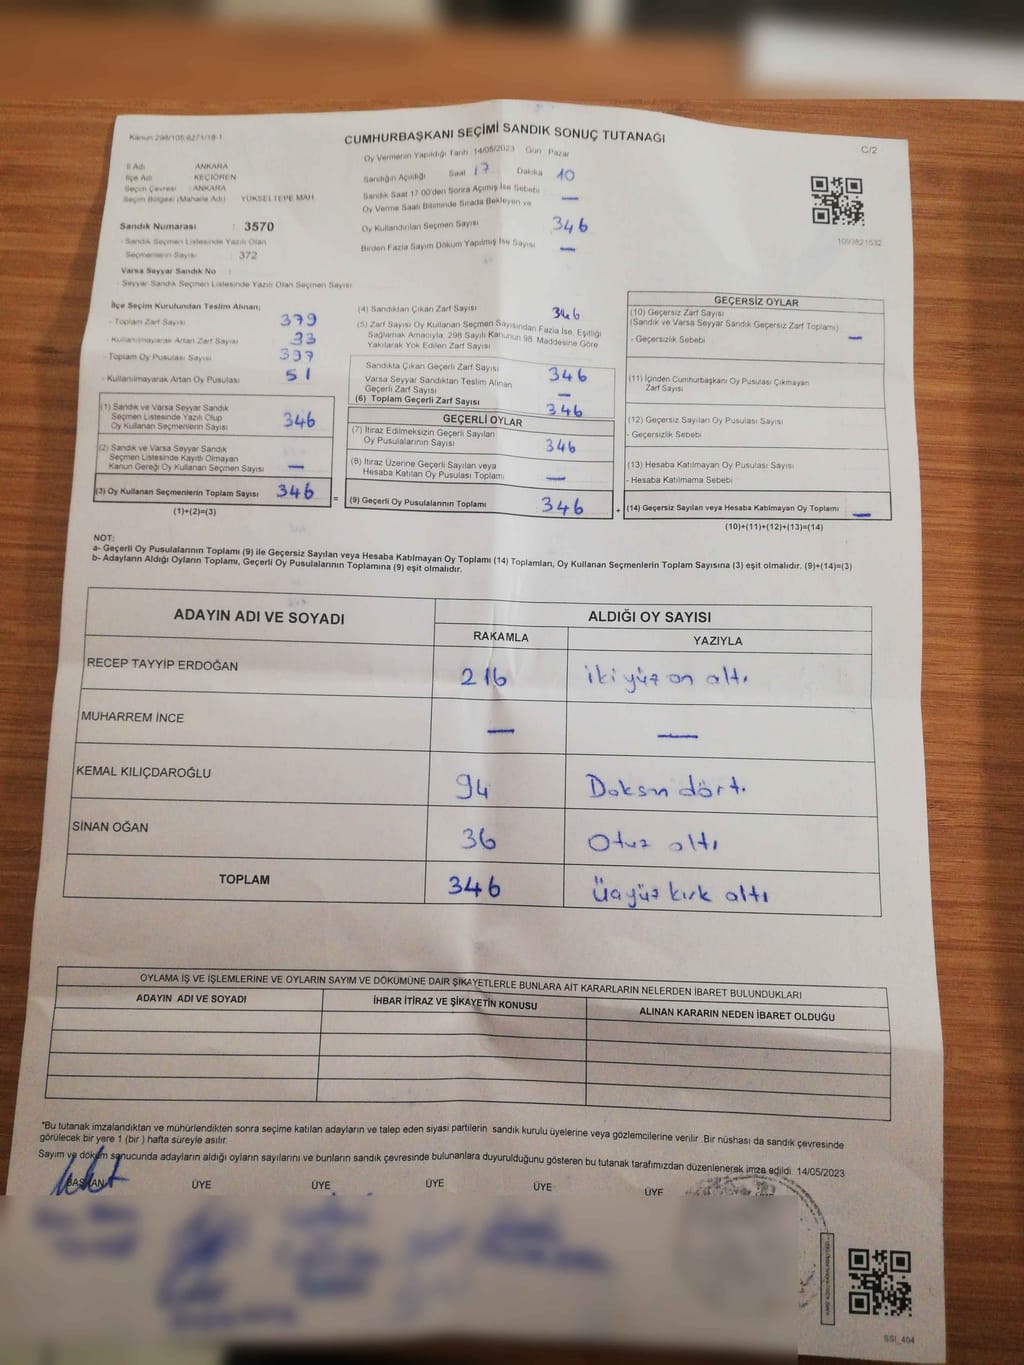 Kanun:298/105,6271/18-1
CUMHURBAŞKANI SEÇİMİ SANDIK SONUÇ TUTANAĞI
C/2
Oy Vermenin Yapıldığı Tarih 14/05/2023 Gün Pazar
İl Adı : ANKARA
İlçe Adı : KEÇİÖREN
Seçim Çevresi : ANKARA
Seçim Bölgesi (Mahalle Adı) YÜKSELTEPE MAH.
Sandığın Açıldığı Saat 17 Dakika 10
Sandık Saat 17.00'den Sonra Açımış İse Sebebi —
Oy Verme Saati Bitiminde Sırada Bekleyen ve
Oy Kullandırılan Seçmen Sayısı 346
Birden Fazla Sayım Döküm Yapılmış İse Sayısı —
1093821532
Sandık Numarası : 3570
- Sandık Seçmen Listesinde Yazılı Olan
Seçmenlerin Sayısı : 372
Varsa Seyyar Sandık No :
- Seyyar Sandık Seçmen Listesinde Yazılı Olan Seçmen Sayısı
İlçe Seçim Kurulundan Teslim Alınan;
- Toplam Zarf Sayısı 379
- Kullanılmayarak Artan Zarf Sayısı 33
- Toplam Oy Pusulası Sayısı 397
- Kullanılmayarak Artan Oy Pusulası 51
(1) Sandık ve Varsa Seyyar Sandık
Seçmen Listesinde Yazılı Olup
Oy Kullanan Seçmenlerin Sayısı 346
(2) Sandık ve Varsa Seyyar Sandık
Seçmen Listesinde Kayıtlı Olmayan
Kanun Gereği Oy Kullanan Seçmen Sayısı —
(3) Oy Kullanan Seçmenlerin Toplam Sayısı 346 =
(1)+(2)=(3)
(4) Sandıktan Çıkan Zarf Sayısı 346
(5) Zarf Sayısı Oy Kullanan Seçmen Sayısından Fazla İse, Eşitliği
Sağlamak Amacıyla, 298 Sayılı Kanunun 98. Maddesine Göre
Yakılarak Yok Edilen Zarf Sayısı
Sandıkta Çıkan Geçerli Zarf Sayısı 346
Varsa Seyyar Sandıktan Teslim Alınan
Geçerli Zarf Sayısı —
(6) Toplam Geçerli Zarf Sayısı 346
GEÇERLİ OYLAR
(7) İtiraz Edilmeksizin Geçerli Sayılan
Oy Pusulalarının Sayısı 346
(8) İtiraz Üzerine Geçerli Sayılan veya
Hesaba Katılan Oy Pusulası Toplamı —
(9) Geçerli Oy Pusulalarının Toplamı 346 +
GEÇERSİZ OYLAR
(10) Geçersiz Zarf Sayısı
(Sandık ve Varsa Seyyar Sandık Geçersiz Zarf Toplamı)
- Geçersizlik Sebebi —
(11) İçinden Cumhurbaşkanı Oy Pusulası Çıkmayan
Zarf Sayısı
(12) Geçersiz Sayılan Oy Pusulası Sayısı
- Geçersizlik Sebebi
(13) Hesaba Katılmayan Oy Pusulası Sayısı
- Hesaba Katılmama Sebebi
(14) Geçersiz Sayılan veya Hesaba Katılmayan Oy Toplamı —
(10)+(11)+(12)+(13)=(14)
NOT:
a- Geçerli Oy Pusulalarının Toplamı (9) ile Geçersiz Sayılan veya Hesaba Katılmayan Oy Toplamı (14) Toplamları, Oy Kullanan Seçmenlerin Toplam Sayısına (3) eşit olmalıdır. (9)+(14)=(3)
b- Adayların Aldığı Oyların Toplamı, Geçerli Oy Pusulalarının Toplamına (9) eşit olmalıdır.
ADAYIN ADI VE SOYADI ALDIĞI OY SAYISI
RAKAMLA YAZIYLA
RECEP TAYYİP ERDOĞAN 216 iki yüz on altı
MUHARREM İNCE — —
KEMAL KILIÇDAROĞLU 94 Doksan dört.
SİNAN OĞAN 36 Otuz altı
TOPLAM 346 Üçyüz kırk altı
OYLAMA İŞ VE İŞLEMLERİNE VE OYLARIN SAYIM VE DÖKÜMÜNE DAİR ŞİKAYETLERLE BUNLARA AİT KARARLARIN NELERDEN İBARET BULUNDUKLARI
ADAYIN ADI VE SOYADI İHBAR İTİRAZ VE ŞİKAYETİN KONUSU ALINAN KARARIN NEDEN İBARET OLDUĞU
*Bu tutanak imzalandıktan ve mühürlendikten sonra seçime katılan adayların ve talep eden siyasi partilerin sandık kurulu üyelerine veya gözlemcilerine verilir. Bir nüshası da sandık çevresinde
görülecek bir yere 1 (bir ) hafta süreyle asılır.
Sayım ve döküm sonucunda adayların aldığı oyların sayılarını ve bunların sandık çevresinde bulunanlara duyurulduğunu gösteren bu tutanak tarafımızdan düzenlenerek imza edildi. 14/05/2023
BAŞKAN ÜYE ÜYE ÜYE ÜYE ÜYE
SSI_404